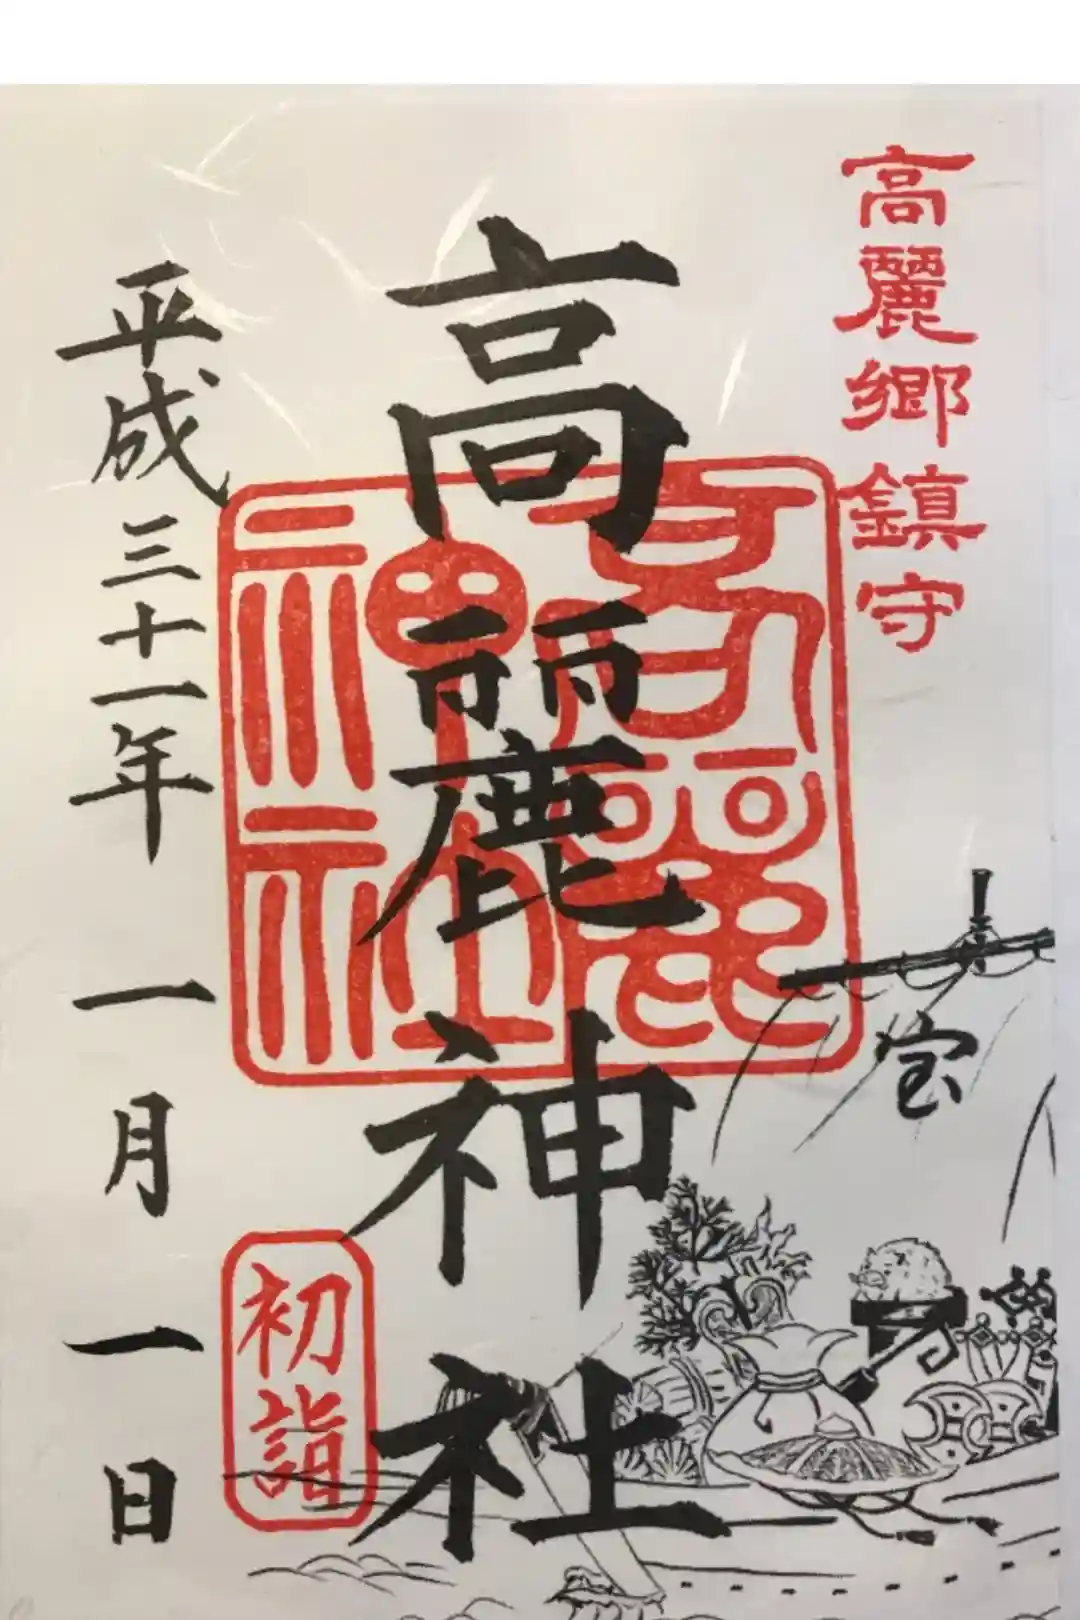 高麗郷鎮守
高麗神社
高麗神社
平成三十一年一月一日
初詣
宝